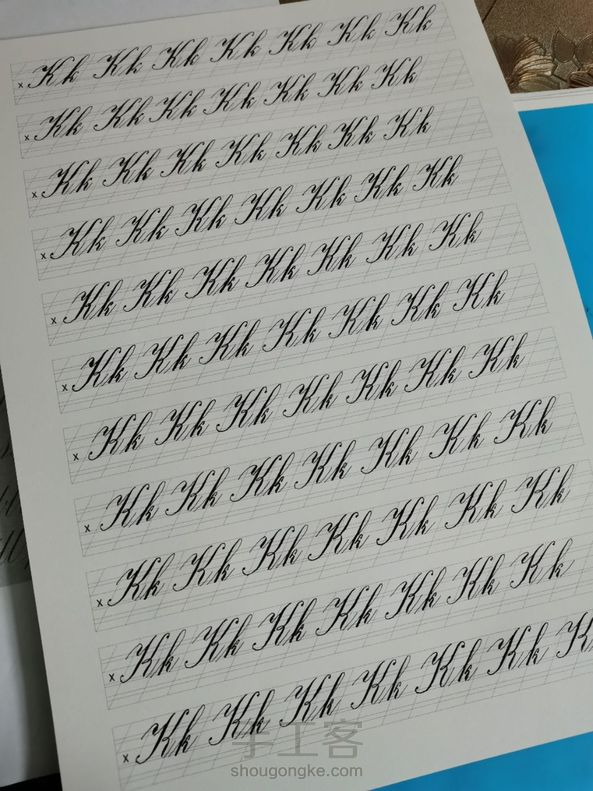 x Kk Kk Kk Kk Kk Kk Kk
x Kk Kk Kk Kk Kk Kk Kk
x Kk Kk Kk Kk Kk Kk Kk
x Kk Kk Kk Kk Kk Kk Kk
x Kk Kk Kk Kk Kk Kk Kk
x Kk Kk Kk Kk Kk Kk Kk
x Kk Kk Kk Kk Kk Kk Kk
x Kk Kk Kk Kk Kk Kk Kk
x Kk Kk Kk Kk Kk Kk Kk
x Kk Kk Kk Kk Kk Kk Kk
x Kk Kk Kk Kk Kk Kk K
手工客
shougongke.com